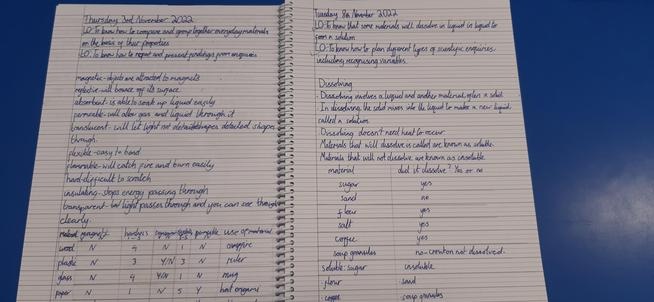 Thursday 3rd November 2022
LO: To know how to compare and group together everyday materials
on the basis of their properties
LO: To know how to report and present findings from enquiries
magnetic-objects are attracted to magnets
reflective-will bounce off its surface
absorbent-is able to soak up liquid easily
permeable-will allow gas and liquid through it
translucent-will let light not detailed shapes
through.
flexible-easy to bend
flammable-will catch fire and burn easily
hard-difficult to scratch
insulating-stops energy passing through
transparent-let light passes through and you can see through
clearly.
material magnetic hardness permeable use of material
wood N 4 N 1 N campfire
plastic N 3 Y/N 3 N ruler
glass N 4 Y/N 1 N mug
paper N 1 N 5 Y
Tuesday 8th November 2022
LO: To know that some materials will dissolve in liquid to
form a solution
LO: To know how to plan different types of scientific enquiries,
including recognising variables.
Dissolving
Dissolving involves a liquid and another material, often a solid.
In dissolving, the solid mixes into the liquid to make a new liquid
called a solution.
Dissolving doesn't need heat to occur.
Materials that will dissolve is called are known as soluble.
Materials that will not dissolve are known as insoluble.
material did it dissolve? Yes or no
sugar yes
sand no
flour yes
salt yes
coffee yes
soup granules no-crouton not dissolved.
soluble: sugar insoluble
flour sand
coffee soup granules